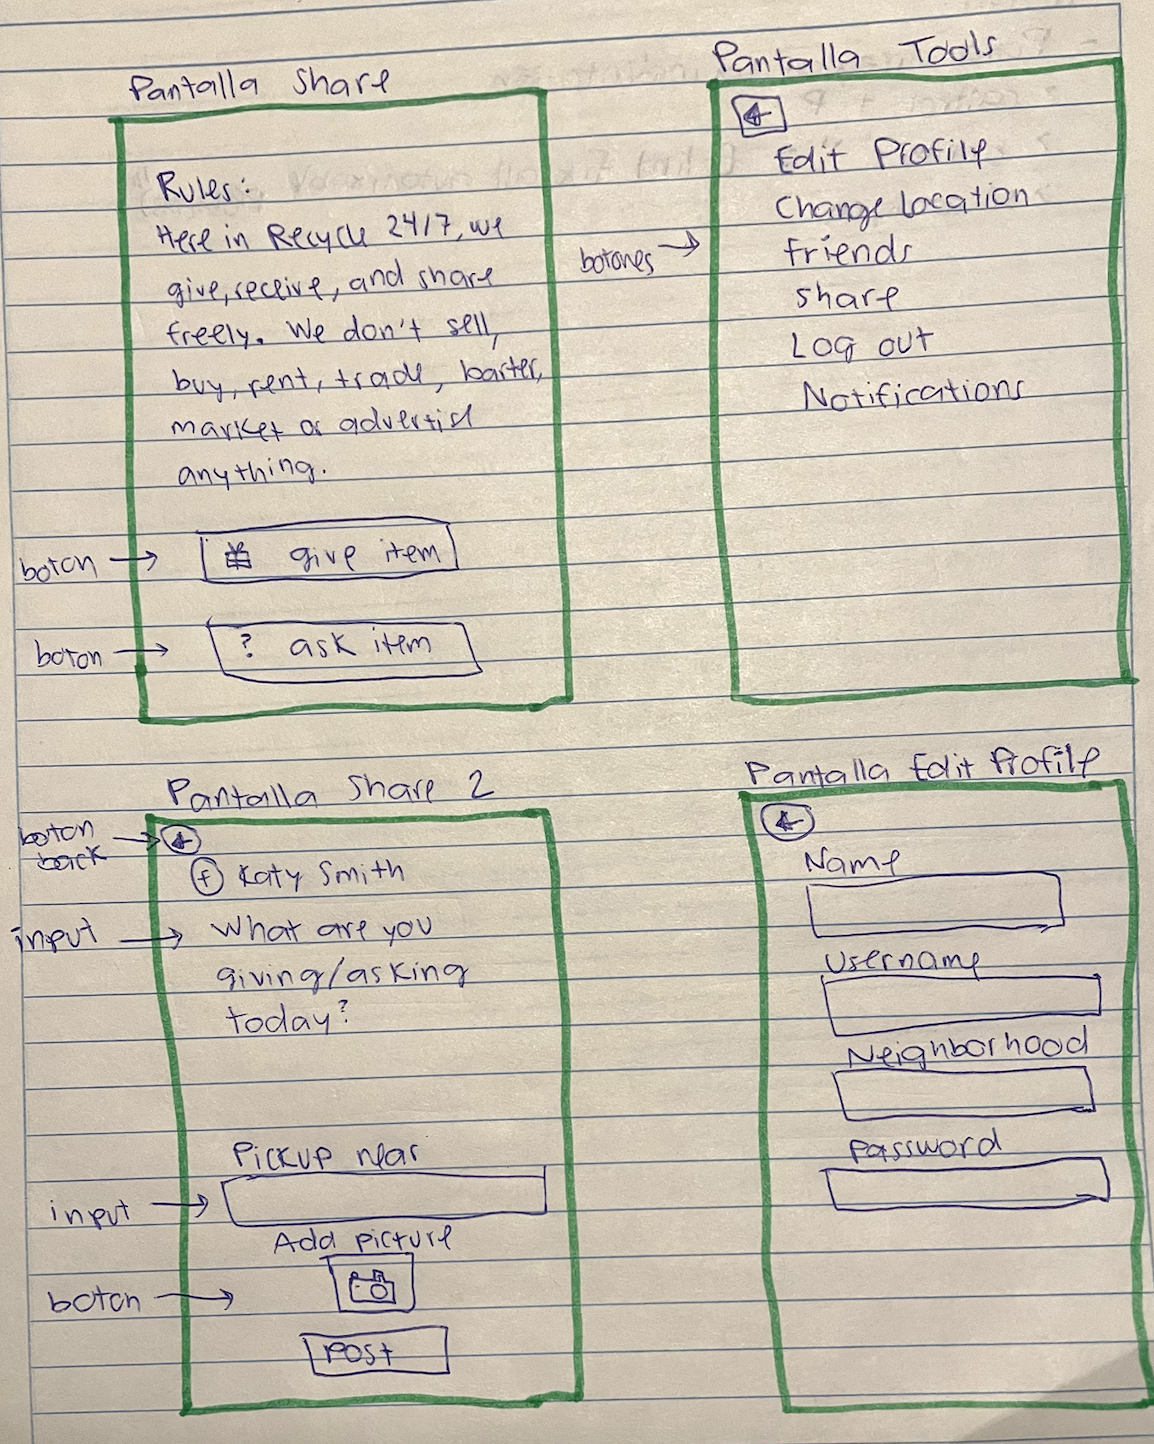 Pantalla Share
Rules:
Here in Recycle 24/7, we
give, receive, and share
freely. We don't sell,
buy, rent, trade, barter,
market or advertise
anything.
boton →
give item
boton →
? ask item
Pantalla Tools
←
Edit Profile
Change location
botones →
friends
share
Log out
Notifications
Pantalla Share 2
boton
back →
←
f Katy Smith
input →
What are you
giving/asking
today?
Pickup near
input →
Add picture
boton →
Post
Pantalla Edit Profile
←
Name
Username
Neighborhood
Password